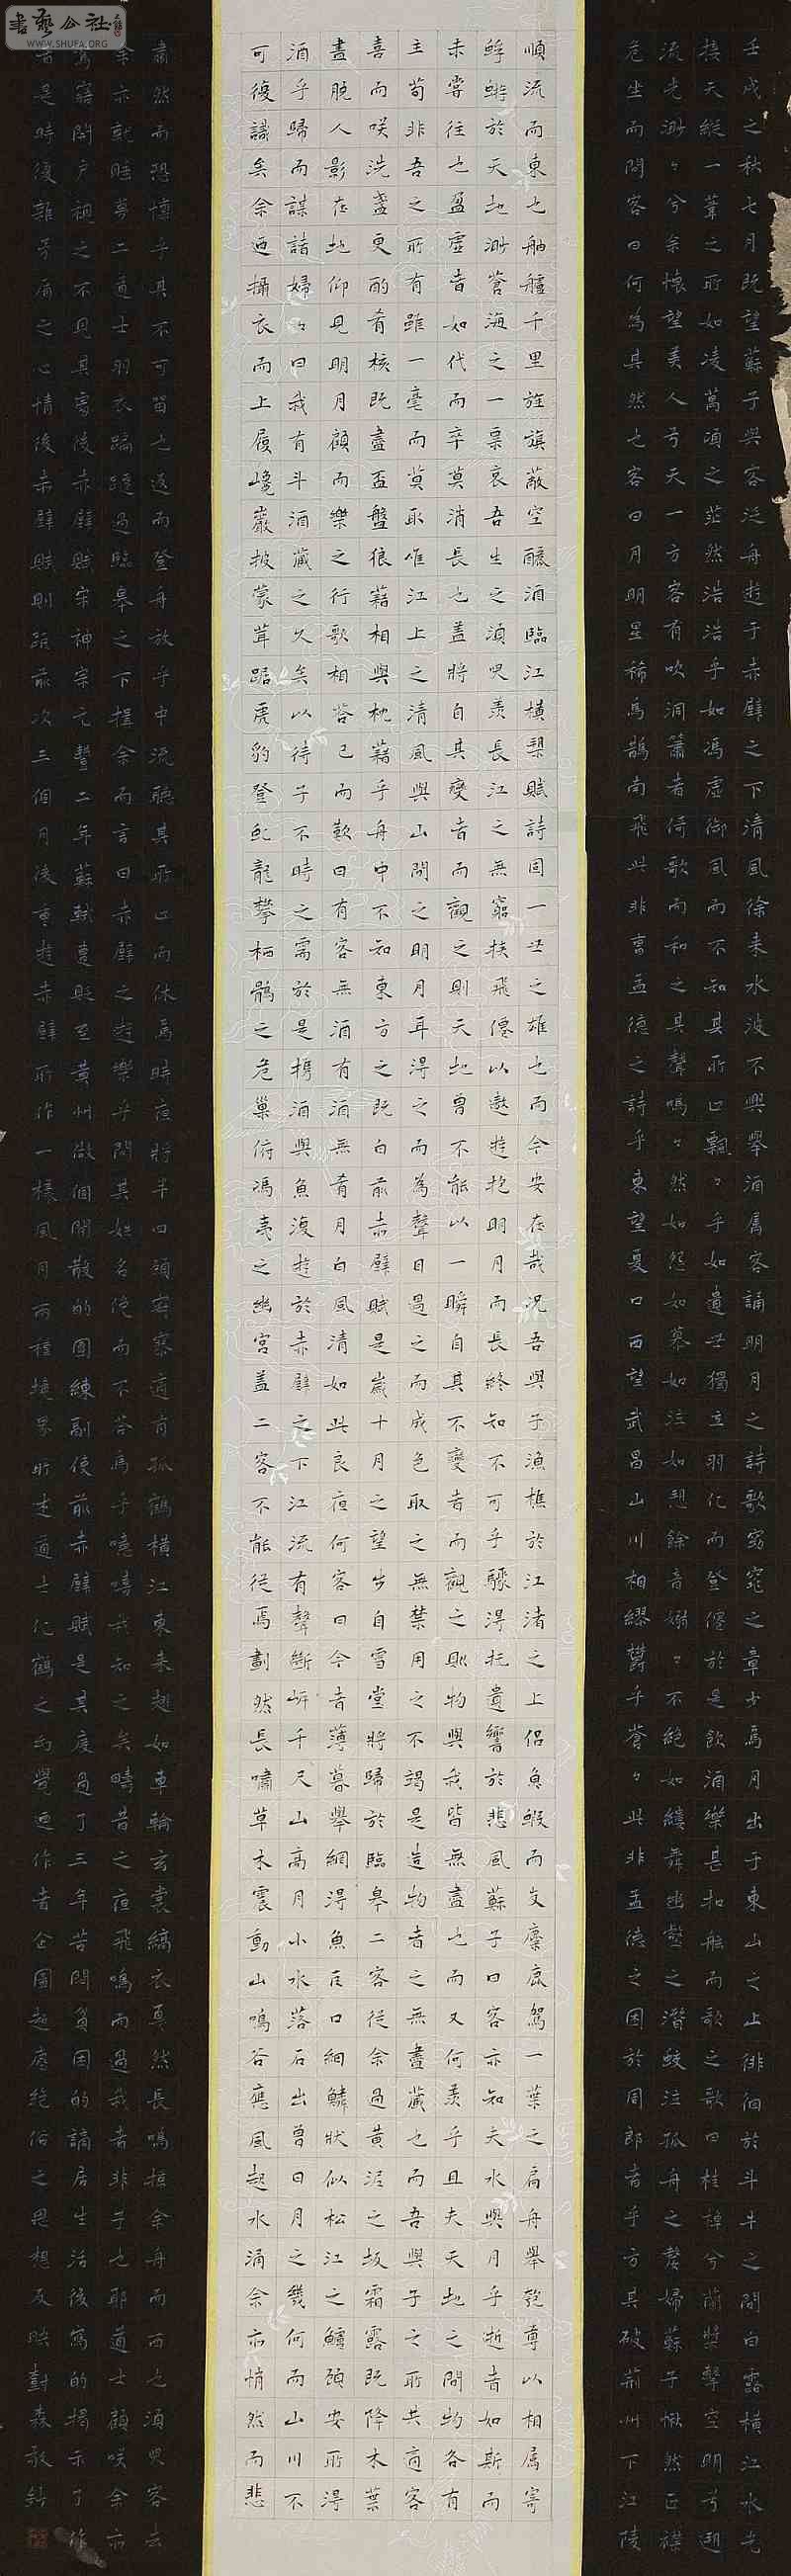 壬戌之秋七月既望蘇子與客泛舟遊于赤壁之下清風徐來水波不興舉酒屬客誦明月之詩歌窈窕之章少焉月出于東山之上徘徊於斗牛之間白露橫江水光
接天縱一葦之所如凌萬頃之茫然浩浩乎如馮虛御風而不知其所止飄々乎如遺世獨立羽化而登僊於是飲酒樂甚扣舷而歌之歌曰桂棹兮蘭槳擊空明兮遡
流光渺々兮余懷望美人兮天一方客有吹洞簫者倚歌而和之其聲鳴々然如怨如慕如泣如愬餘音嫋々不絕如縷舞幽壑之潛蛟泣孤舟之嫠婦蘇子愀然正襟
危坐而問客曰何為其然也客曰月明星稀烏鵲南飛此非曹孟德之詩乎東望夏口西望武昌山川相繆鬱乎蒼々此非孟德之困於周郎者乎方其破荊州下江陵
順流而東也舳艫千里旌旗蔽空釃酒臨江橫槊賦詩固一世之雄也而今安在哉況吾與子漁樵於江渚之上侶魚蝦而友麋鹿駕一葉之扁舟舉匏尊以相屬寄
蜉蝣於天地渺蒼海之一粟哀吾生之須臾羨長江之無窮挾飛僊以遨遊抱明月而長終知不可乎驟得托遺響於悲風蘇子曰客亦知夫水與月乎逝者如斯而
未嘗往也盈虛者如代而卒莫消長也蓋將自其變者而觀之則天地曾不能以一瞬自其不變者而觀之則物與我皆無盡也而又何羨乎且夫天地之間物各有
主苟非吾之所有雖一毫而莫取唯江上之清風與山間之明月耳得之而為聲目遇之而成色取之無禁用之不竭是造物者之無盡藏也而吾與子之所共適客
喜而咲洗盞更酌肴核既盡盃盤狼藉相與枕藉乎舟中不知東方之既白前赤壁賦是歲十月之望步自雪堂將歸於臨皋二客從余過黃泥之坂霜露既降木葉
盡脫人影在地仰見明月顧而樂之行歌相答已而歎曰有客無酒有酒無肴月白風清如此良夜何客曰今者薄暮舉網得魚巨口細鱗狀似松江之鱸顧安所得
酒乎歸而謀諸婦々曰我有斗酒藏之久矣以待子不時之需於是携酒與魚復遊於赤壁之下江流有聲斷岸千尺山高月小水落石出曾日月之幾何而山川不
可復識矣余迺攝衣而上履巉巖披蒙茸踞虎豹登虬龍攀栖鶻之危巢俯馮夷之幽宮蓋二客不能從焉劃然長嘯草木震動山鳴谷應風起水涌余亦悄然而悲
肅然而恐懍乎其不可留也返而登舟放乎中流聽其所止而休焉時夜將半四顧寂寥適有孤鶴橫江東來翅如車輪玄裳縞衣戛然長鳴掠余舟而西也須臾客去
余亦就睡夢二道士羽衣蹁躚過臨皋之下揖余而言曰赤壁之遊樂乎問其姓名俛而不答焉乎噫嘻我知之矣疇昔之夜飛鳴而過我者非子也耶道士顧咲余亦
驚寤開戶視之不見其處後赤壁賦宋神宗元豐二年蘇軾遭貶至黃州做個閒散的團練副使前赤壁賦是其度過了三年苦悶貧困的謫居生活後寫的揭示了作
者是時復雜矛盾之心情後赤壁賦則距前次三個月後重遊赤壁所作一樣風月兩種境界所述道士化鶴之幻覺迺作者企圖超塵絕俗之思想反映封森敬錄
書藝公社
WWW.SHUFA.ORG